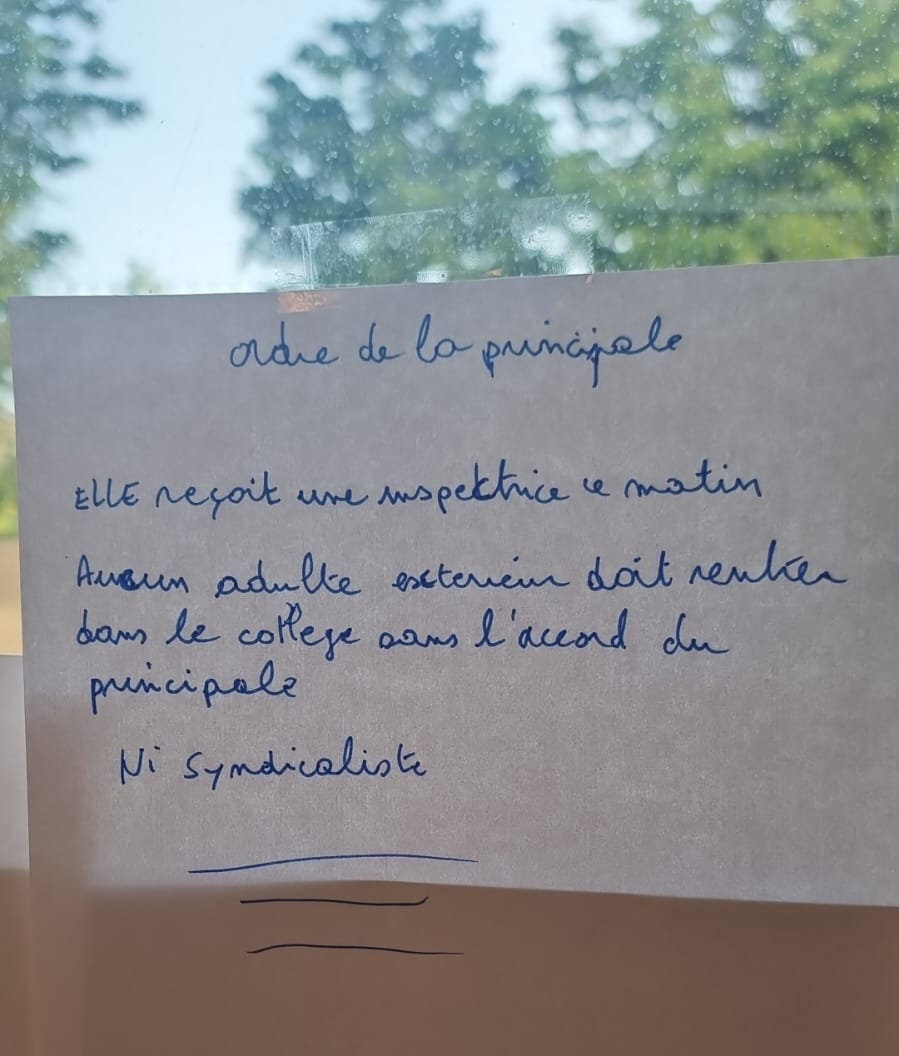 ordre de la principale
ELLE reçoit une inspektrice ce matin
Aucun adulte exterieur doit rentrer
dans le college sans l'accord du
principale
Ni syndicaliste